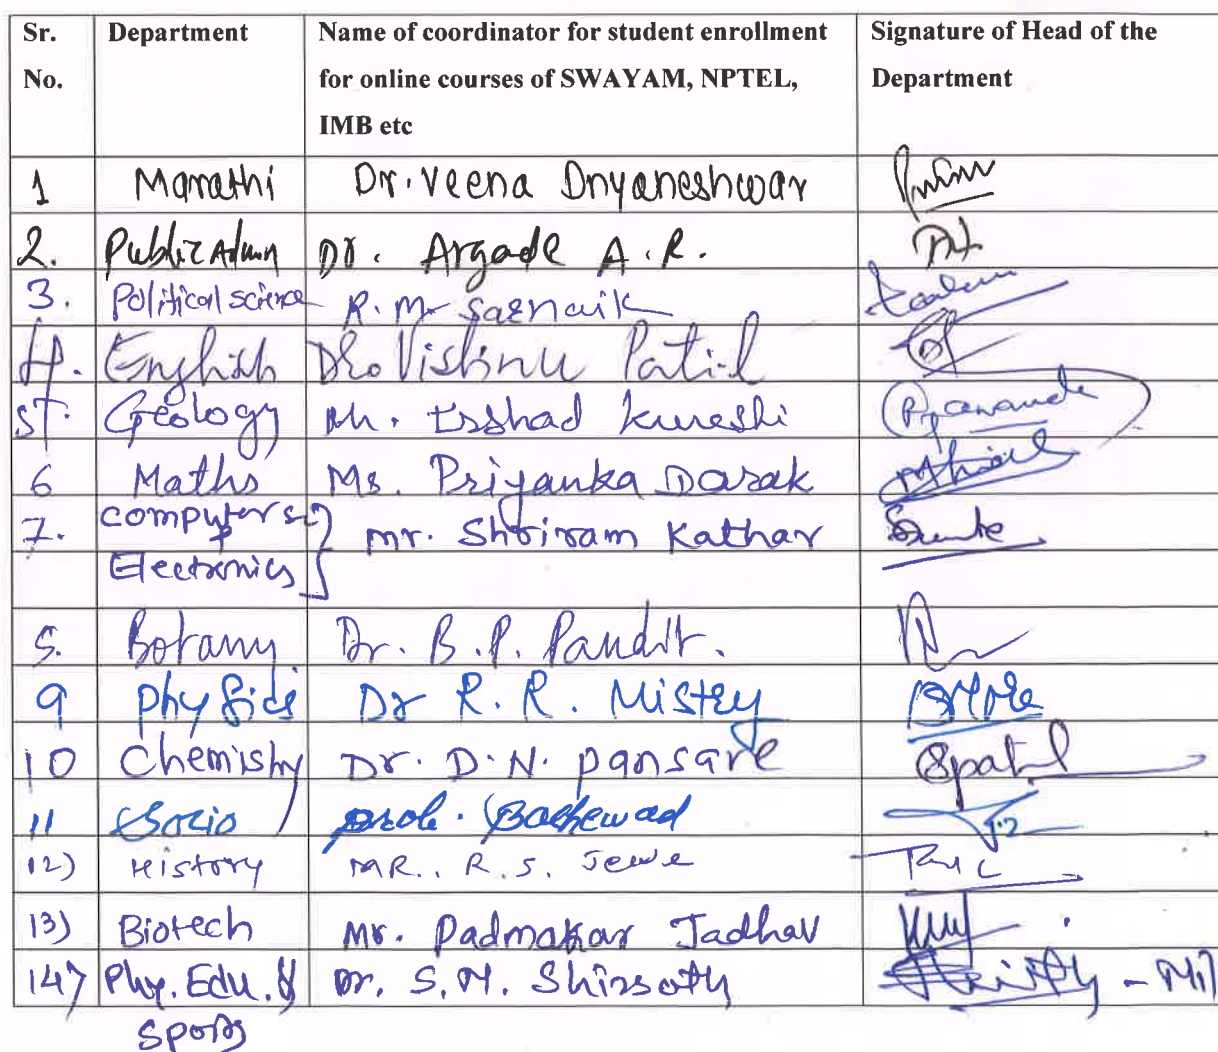 Sr. No. Department Name of coordinator for student enrollment for online courses of SWAYAM, NPTEL, IMB etc Signature of Head of the Department
1 Marathi Dr. Veena Dnyaneshwar
2. Public Admn Dr. Argade A. R.
3. Political science R. M.
4. English Dr. Vishnu Patil
5. Geology Mr. Irshad Kureshi
6 Maths Ms. Priyanka Darak
7. Computer sc. Electronics Mr. Shriram Kathar
8. Botany Dr. B. P. Pandit.
9 Physics Dr R. R. Mistry
10 Chemistry Dr. D. N. Pansare Spatil
11 Socio Bachewad
12) History MR. R. S.
13) Biotech Mr. Padmakar Jadhav
14) Phy. Edu. & Dr. S. M.
Sports